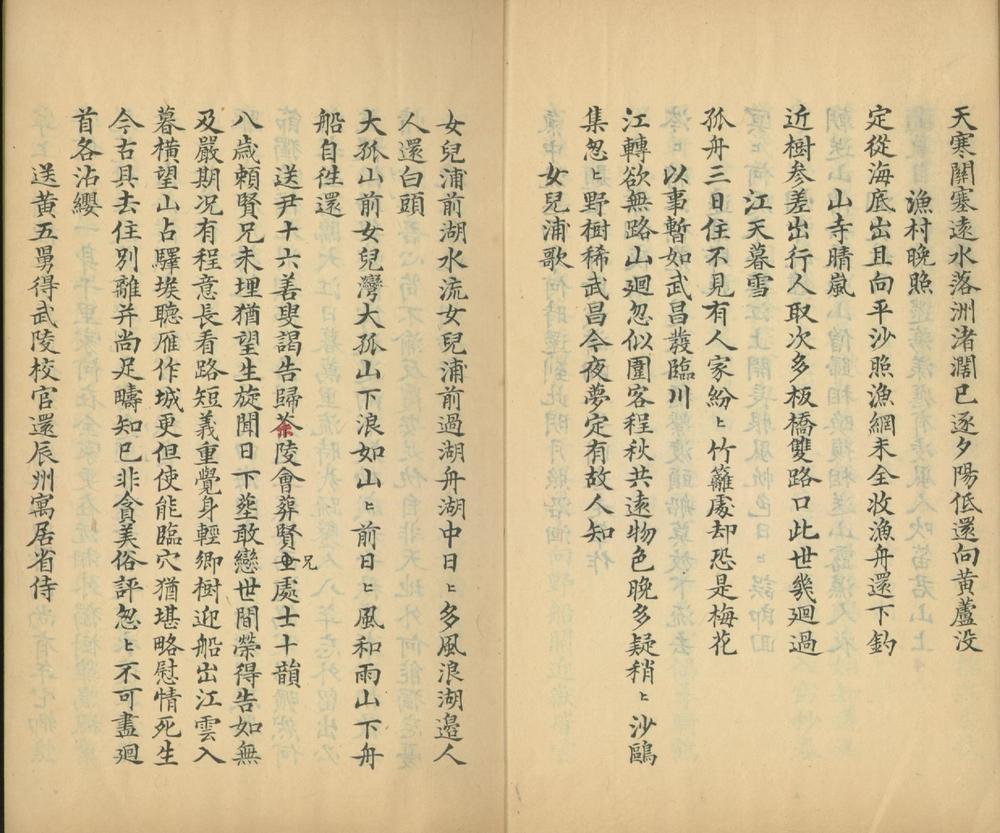 天寒關塞遠水落洲渚濶已逐夕陽低還向黃蘆没
漁村晚照
定從海底出且向平沙照漁網未全收漁舟還下釣
山寺晴嵐
近樹叅差出行人取次多板橋雙路口此世幾廻過
江天暮雪
孤舟三日住不見有人家紛〻竹籬處却恐是梅花
以事暫如武昌發臨川
江轉欲無路山廻忽似圍客程秋共遠物色晚多疑稍〻沙鷗
集忽〻野樹稀武昌今夜夢定有故人知
女兒浦歌
女兒浦前湖水流女兒浦前過湖舟湖中日〻多風浪湖邉人
人還白頭
大孤山前女兒灣大孤山下浪如山〻前日〻風和雨山下舟
船自徃還
送尹十六善叟謁告歸茶陵會葬賢兄處士十韻
八歲賴賢兄未埋猶望生旋聞日下塟敢戀世間榮得告如無
及嚴期况有程意長看路短義重覺身輕卿樹迎船出江雲入
暮橫望山占驛堠聽雁作城更但使能臨穴猶堪略慰情死生
今古具去住別離并尚足疇知已非貪美俗評忽〻不可盡廻
首各沾纓
送黃五舅得武陵校官還辰州寓居省侍